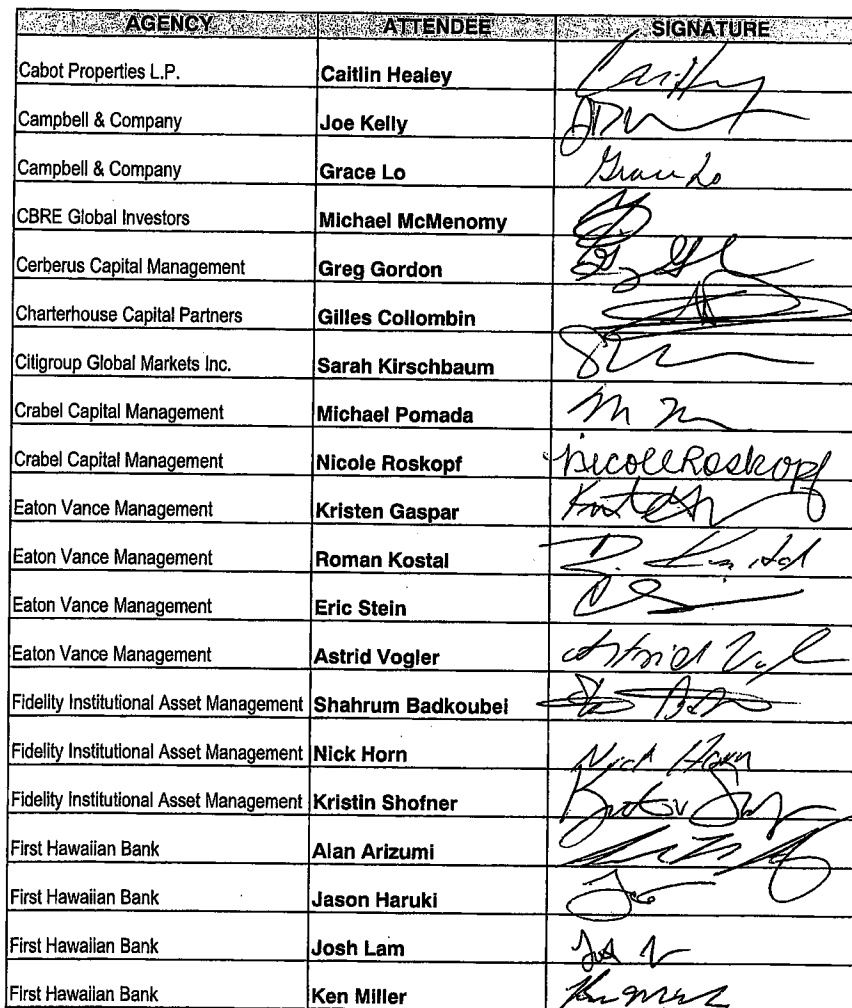 AGENCY ATTENDEE SIGNATURE
Cabot Properties L.P. Caitlin Healey
Campbell & Company Joe Kelly
Campbell & Company Grace Lo Grace Lo
CBRE Global Investors Michael McMenomy
Cerberus Capital Management Greg Gordon
Charterhouse Capital Partners Gilles Collombin
Citigroup Global Markets Inc. Sarah Kirschbaum
Crabel Capital Management Michael Pomada
Crabel Capital Management Nicole Roskopf Nicole Roskopf
Eaton Vance Management Kristen Gaspar
Eaton Vance Management Roman Kostal
Eaton Vance Management Eric Stein
Eaton Vance Management Astrid Vogler Astrid
Fidelity Institutional Asset Management Shahrum Badkoubei
Fidelity Institutional Asset Management Nick Horn Nick Horn
Fidelity Institutional Asset Management Kristin Shofner
First Hawaiian Bank Alan Arizumi
First Hawaiian Bank Jason Haruki
First Hawaiian Bank Josh Lam
First Hawaiian Bank Ken Miller